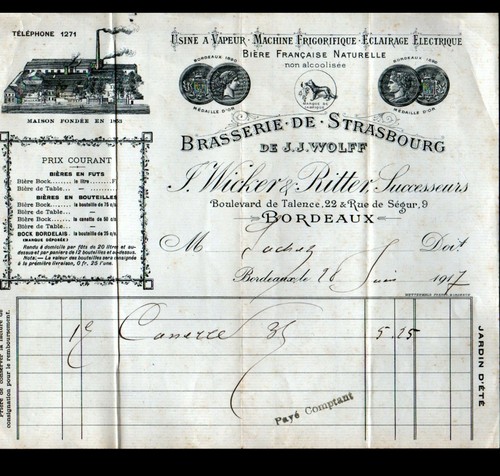 TÉLÉPHONE 1271
USINE A VAPEUR · MACHINE FRIGORIFIQUE · ÉCLAIRAGE ELECTRIQUE
BIÈRE FRANÇAISE NATURELLE
non alcoolisée
BORDEAUX 1890
MÉDAILLE D'OR
MARQUE DE FABRIQUE
BORDEAUX 1890
MÉDAILLE D'OR
MAISON FONDÉE EN 1853
BRASSERIE · DE · STRASBOURG
DE J.J. WOLFF
J. Wicker & Ritter, Successeurs
Boulevard de Talence, 22 & Rue de Ségur, 9
BORDEAUX
PRIX COURANT
BIÈRES EN FUTS
Bière Bock le litre F.
Bière de Table —
BIÈRES EN BOUTEILLES
Bière Bock la bouteille de 75 c/l
Bière de Table —
Bière Bock la canette de 50 c/l
Bière de Table —
BOCK BORDELAIS la bouteille de 35 c/l
(MARQUE DÉPOSÉE)
Rendu à domicile par fûts de 20 litres et au-dessus et par paniers de 12 bouteilles et au-dessus.
Nota: — La valeur des bouteilles sera consignée à la première livraison, 0 fr. 25 l'une.
M Doit
Bordeaux, le 28 Juin 1917
1 Canette 35 5.25
Payé Comptant
JARDIN D'ÉTÉ
Prière de conserver la facture de consignation pour le remboursement.